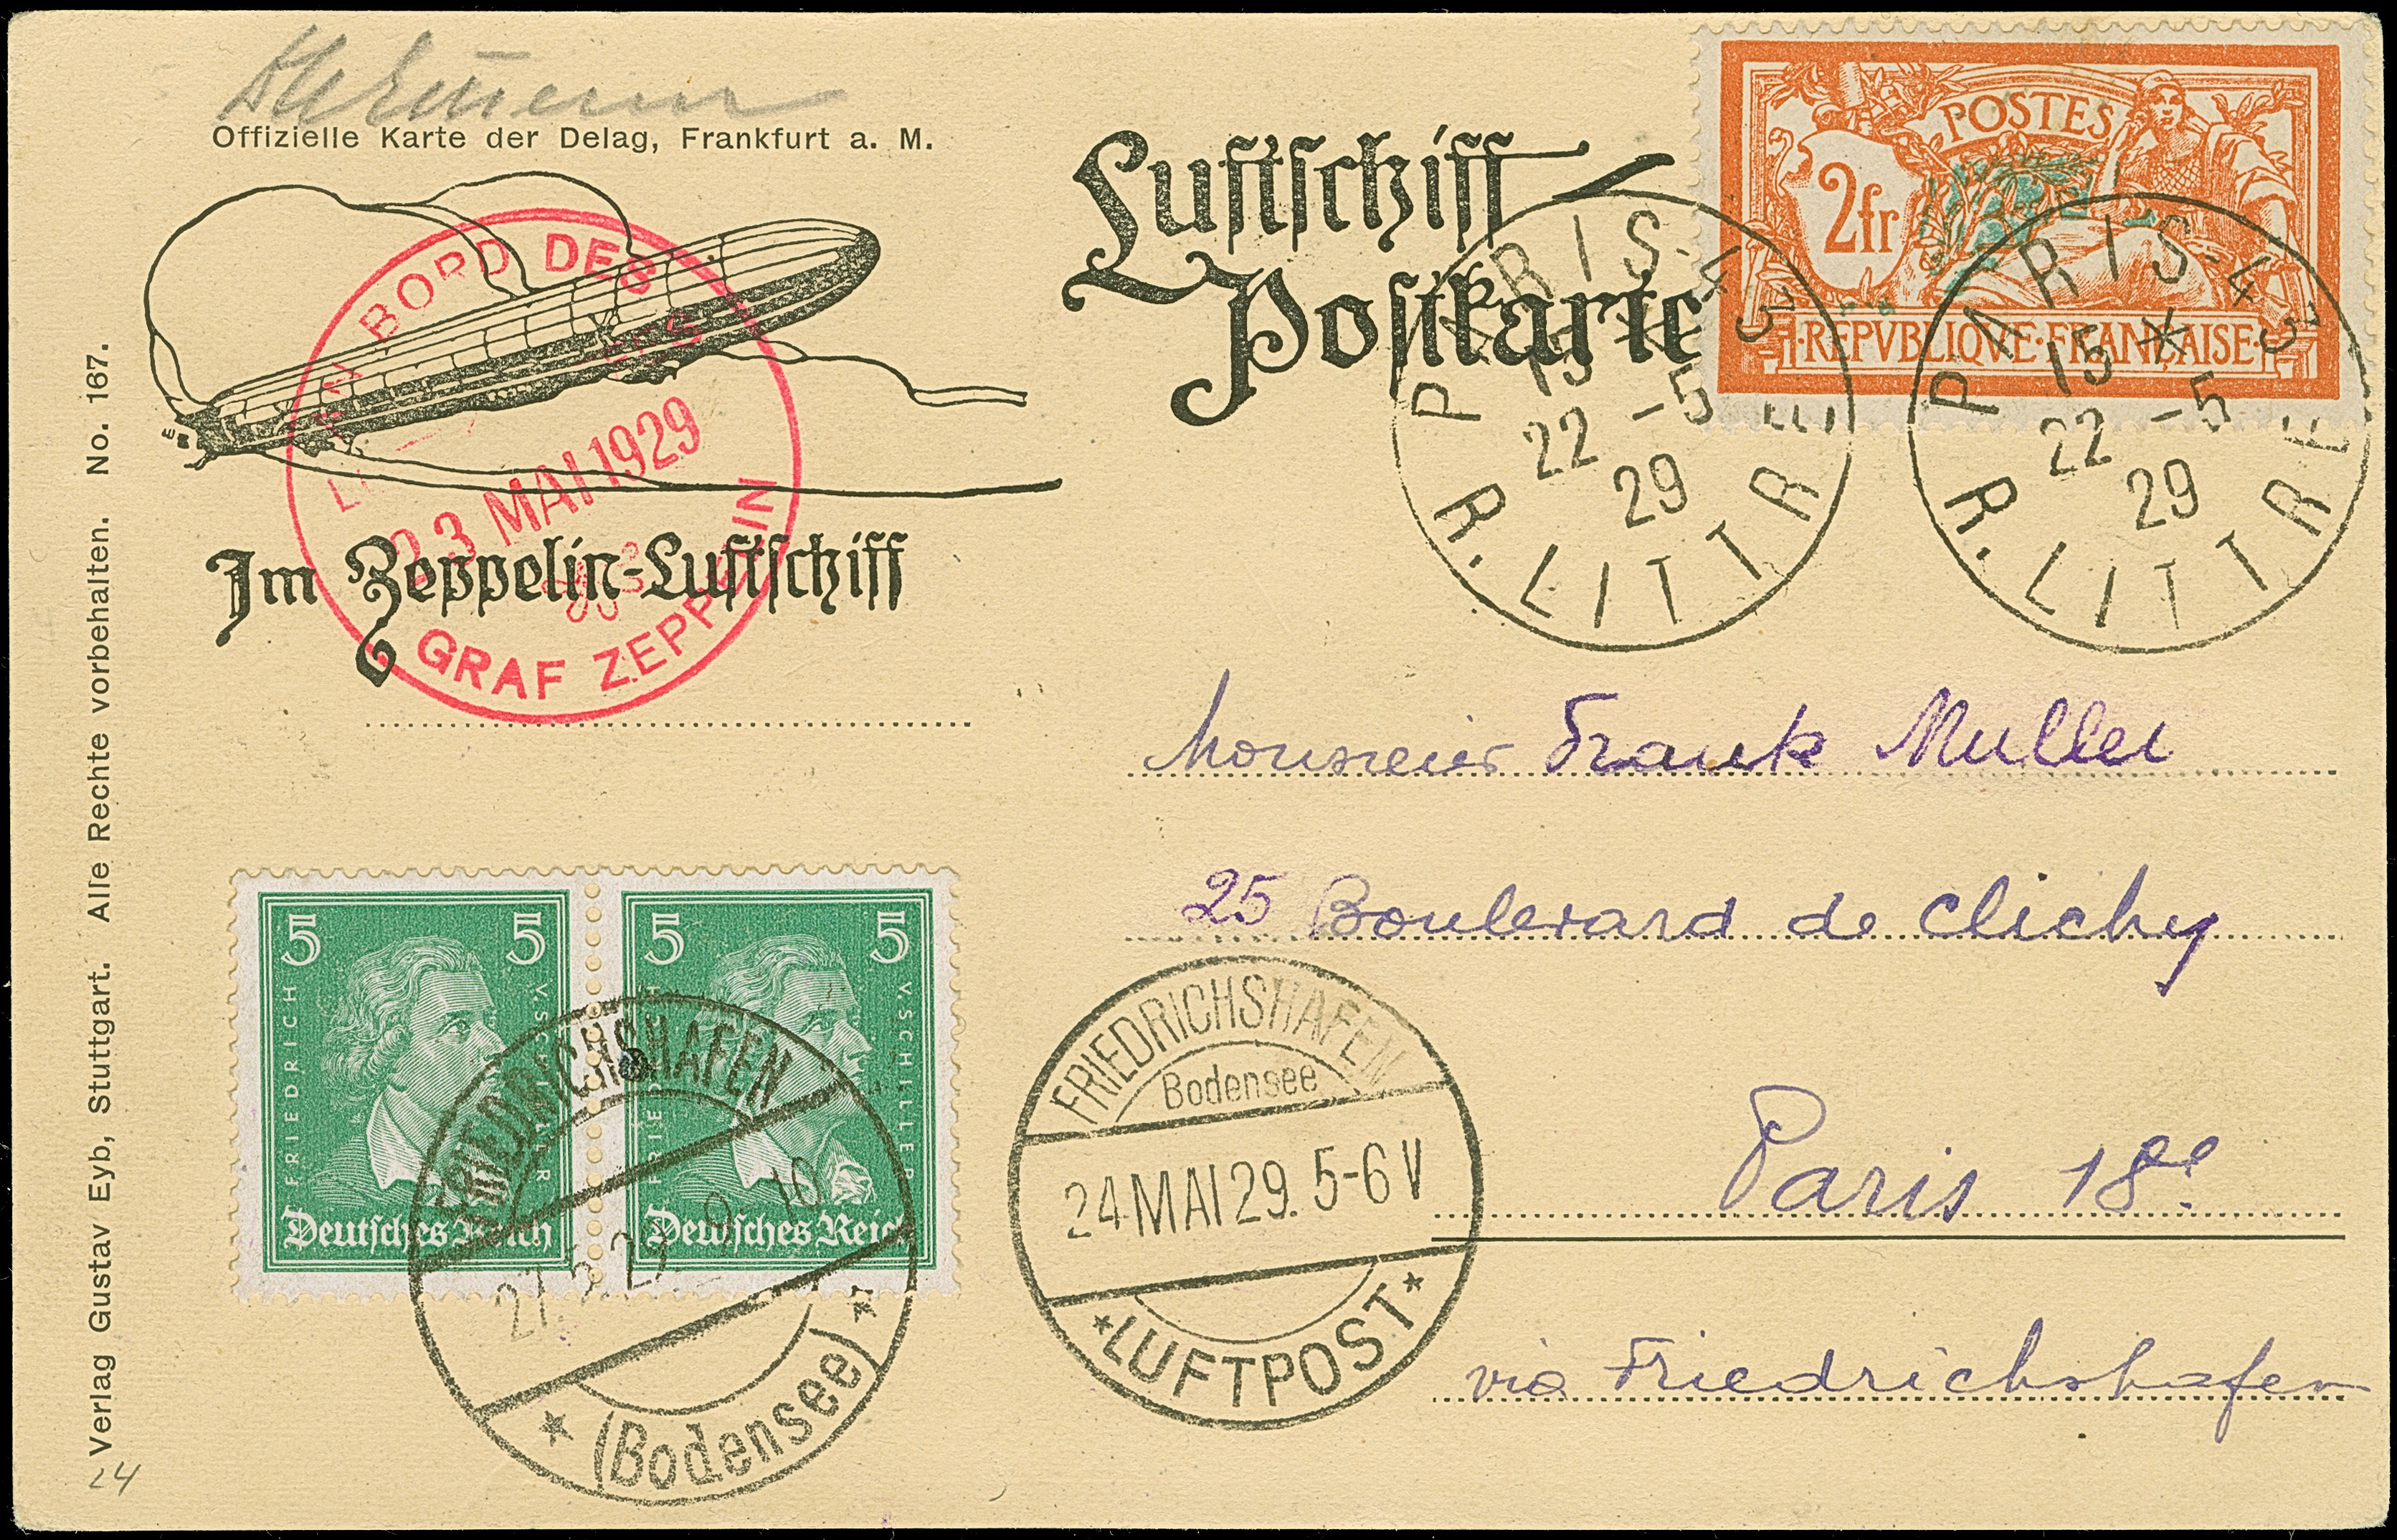 Offizielle Karte der Delag, Frankfurt a. M.
Luftschiff
Postkarte
POSTES
2fr
REPVBLIQVE·FRANÇAISE
PARIS-43
15 *
22 -5
29
R. LITTRE
PARIS-43
15 *
22 -5
29
R. LITTRE
AN BORD DES
23 MAI 1929
GRAF ZEPPELIN
Im Zeppelin-Luftschiff
Monsieur Frank Muller
25 Boulevard de Clichy
Paris 18e
via Friedrichshafen
5 5
FRIEDRICH V. SCHILLER
Deutsches Reich
5 5
FRIEDRICH V. SCHILLER
Deutsches Reich
FRIEDRICHSHAFEN
9-10
(Bodensee)
FRIEDRICHSHAFEN
Bodensee
24 MAI 29. 5-6 V
*LUFTPOST*
Verlag Gustav Eyb, Stuttgart. Alle Rechte vorbehalten. No. 167.
24